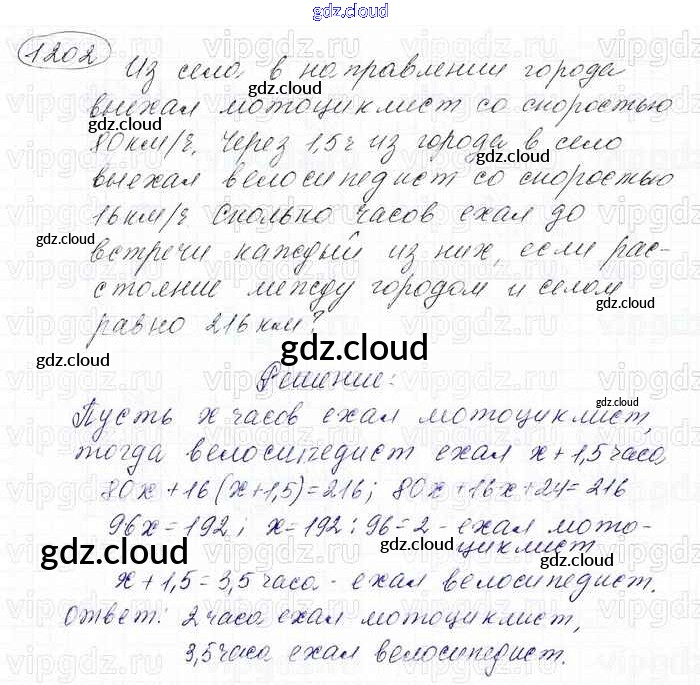 gdz.cloud
1202 Из села в направлении города
выехал мотоциклист со скоростью
80 км/ч. Через 1,5 ч из города в село
выехал велосипедист со скоростью
16 км/ч. Сколько часов ехал до
встречи каждый из них, если рас-
стояние между городом и селом
равно 216 км?
Решение:
Пусть x часов ехал мотоциклист,
тогда велосипедист ехал x + 1,5 часа
80x + 16(x + 1,5) = 216; 80x + 16x + 24 = 216
96x = 192; x = 192 : 96 = 2 - ехал мото-
циклист
x + 1,5 = 3,5 часа - ехал велосипедист.
Ответ: 2 часа ехал мотоциклист,
3,5 часа ехал велосипедист.
gdz.cloud
gdz.cloud
gdz.cloud
gdz.cloud
gdz.cloud
gdz.cloud
gdz.cloud
gdz.cloud
gdz.cloud
gdz.cloud
gdz.cloud
vipgdz.ru